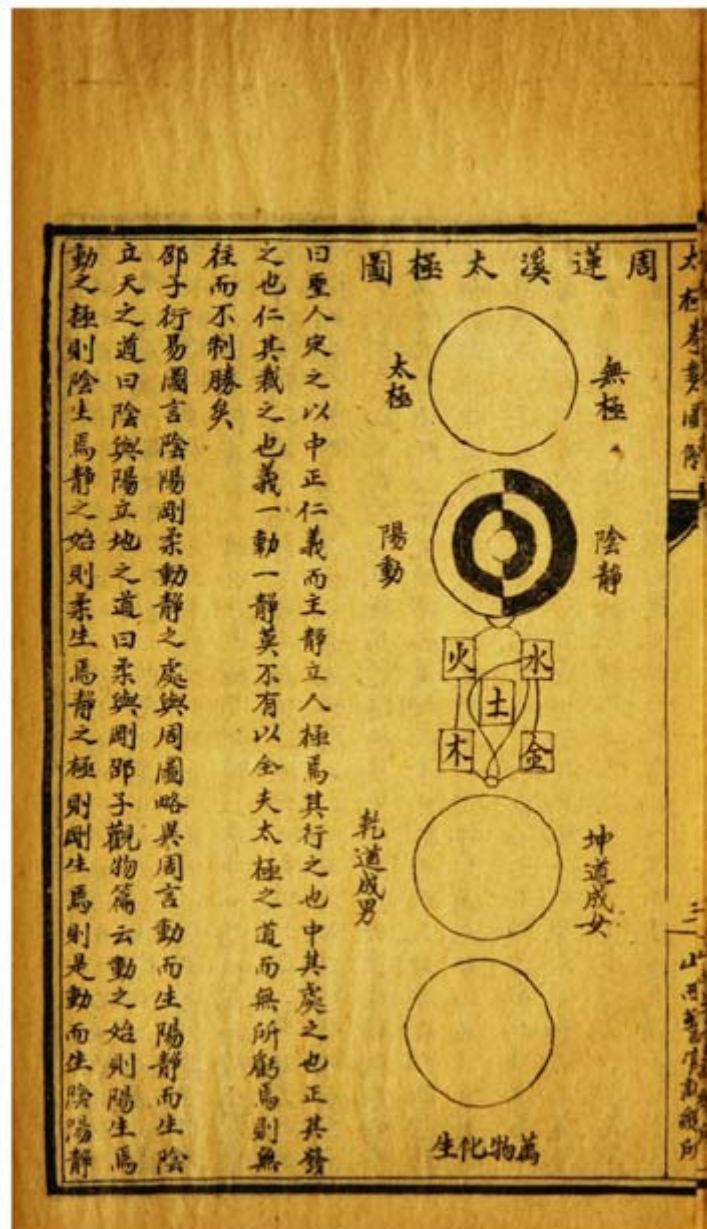 太極拳勢圖解
三
周蓮溪太極圖
無極
太極
陰靜
陽動
水
火
土
金
木
坤道成女
乾道成男
萬物化生
曰聖人定之以中正仁義而主靜立人極焉其行之也中其處之也正其發
之也仁其裁之也義一動一靜莫不有以全夫太極之道而無所虧焉則無
往而不制勝矣
邵子行易圖言陰陽剛柔動靜之處與周圖略異周言動而生陽靜而生陰
立天之道曰陰與陽立地之道曰柔與剛邵子觀物篇云動之始則陽生焉
動之極則陰生焉靜之始則柔生焉靜之極則剛生焉則是動而生陰陽靜